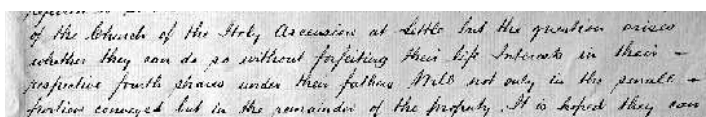 of the Church of the Holy Ascension at Settle but the question arises
whether they can do so without forfeiting their life Interests in their -
respective fourth shares under their fathers Will not only in the small -
portion conveyed but in the remainder of the property. It is hoped they can